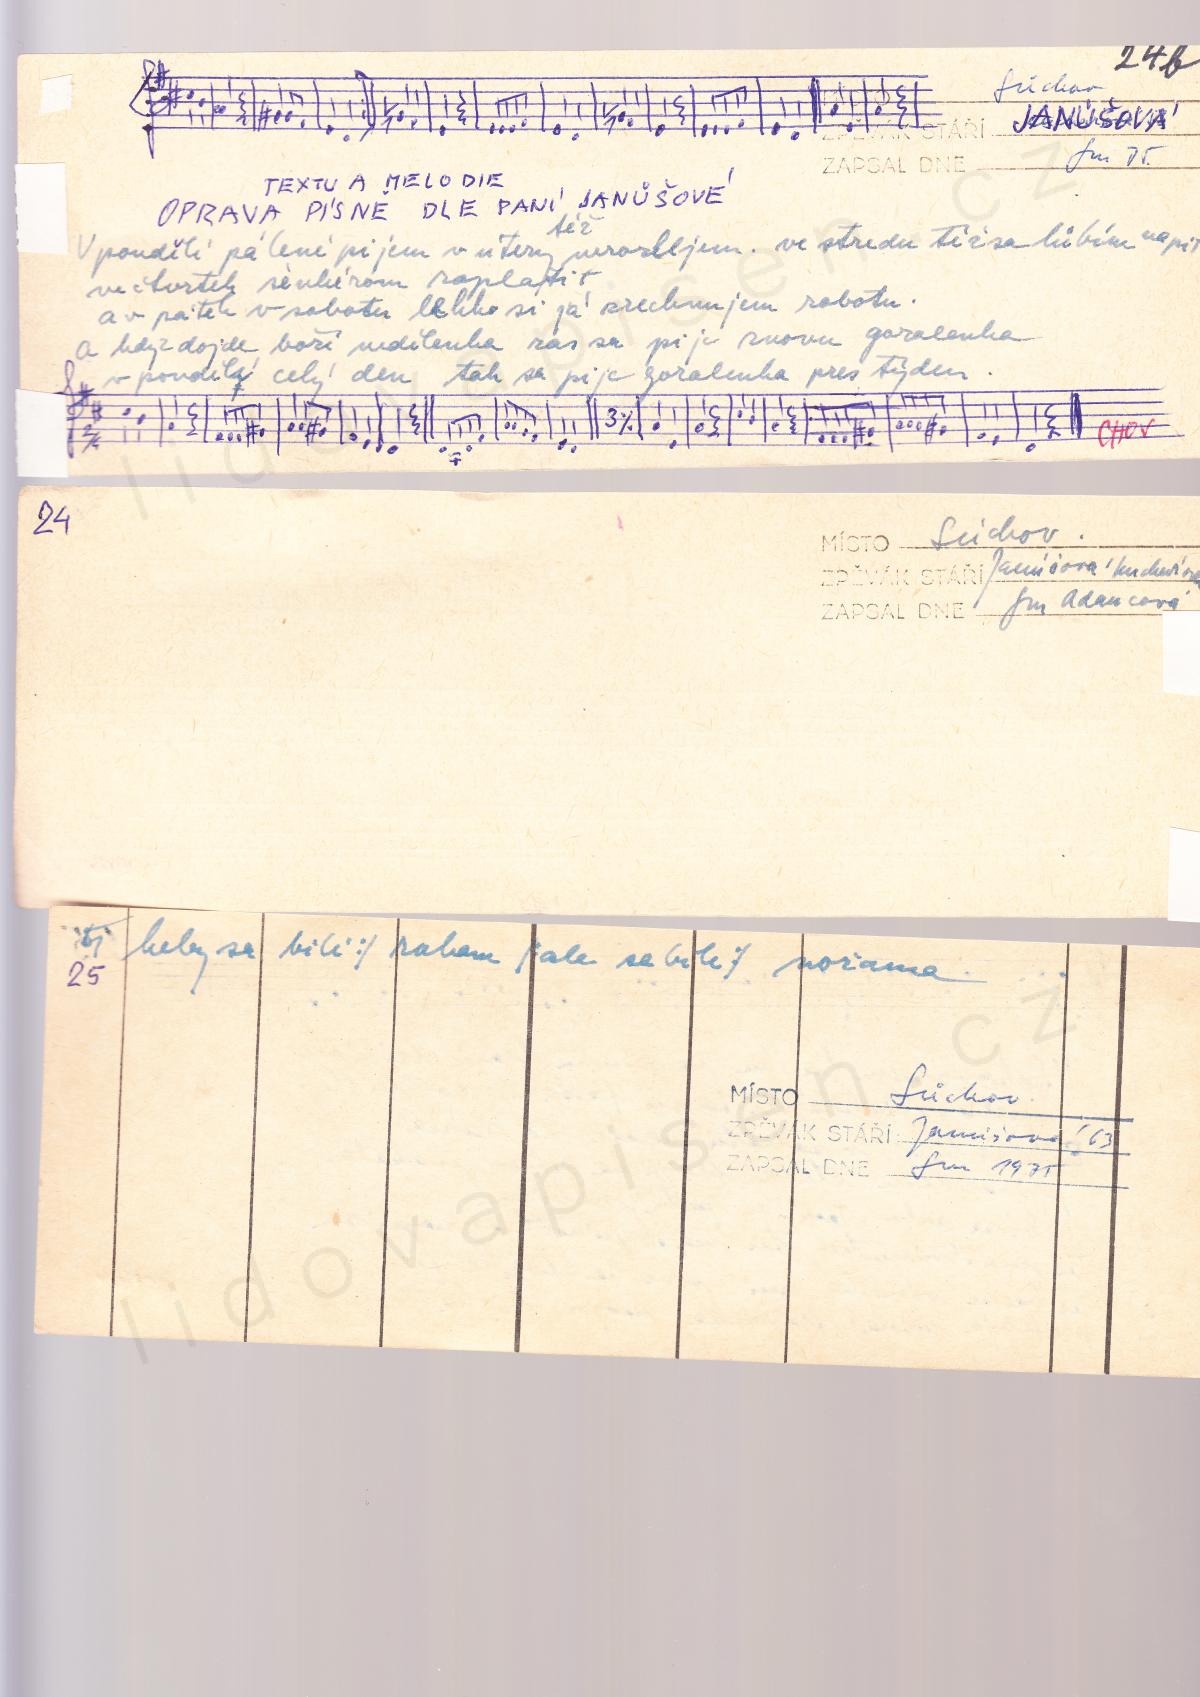 24b
Súchov
ZPĚVÁK STÁŘÍ JANŮŠOVÁ
ZAPSAL DNE 75
TEXTU A MELODIE
OPRAVA PÍSNĚ DLE PANÍ JANŮŠOVÉ
též
V pondělí pálené pijem v úterý nerozlijem. ve středu též sa lúbím napit
ve čtvrtek sénkérom zaplatit
a v pátek v sobotu lehko si já zrechnujem robotu.
a když dojde boží nedělenka zas sa pije znovu goralenka
v pondělí celý den tak sa pije goralenka pres týden.
2/4
CHOV
24
MÍSTO Súchov.
ZPĚVÁK STÁŘÍ Janúšová
ZAPSAL DNE Adamcová
keby sa bili :/ rukam /: ale sa bili :/ nožama
25
MÍSTO Súchov
ZPĚVÁK STÁŘÍ Janúšová 63
ZAPSAL DNE 1975
lidovapisen.cz